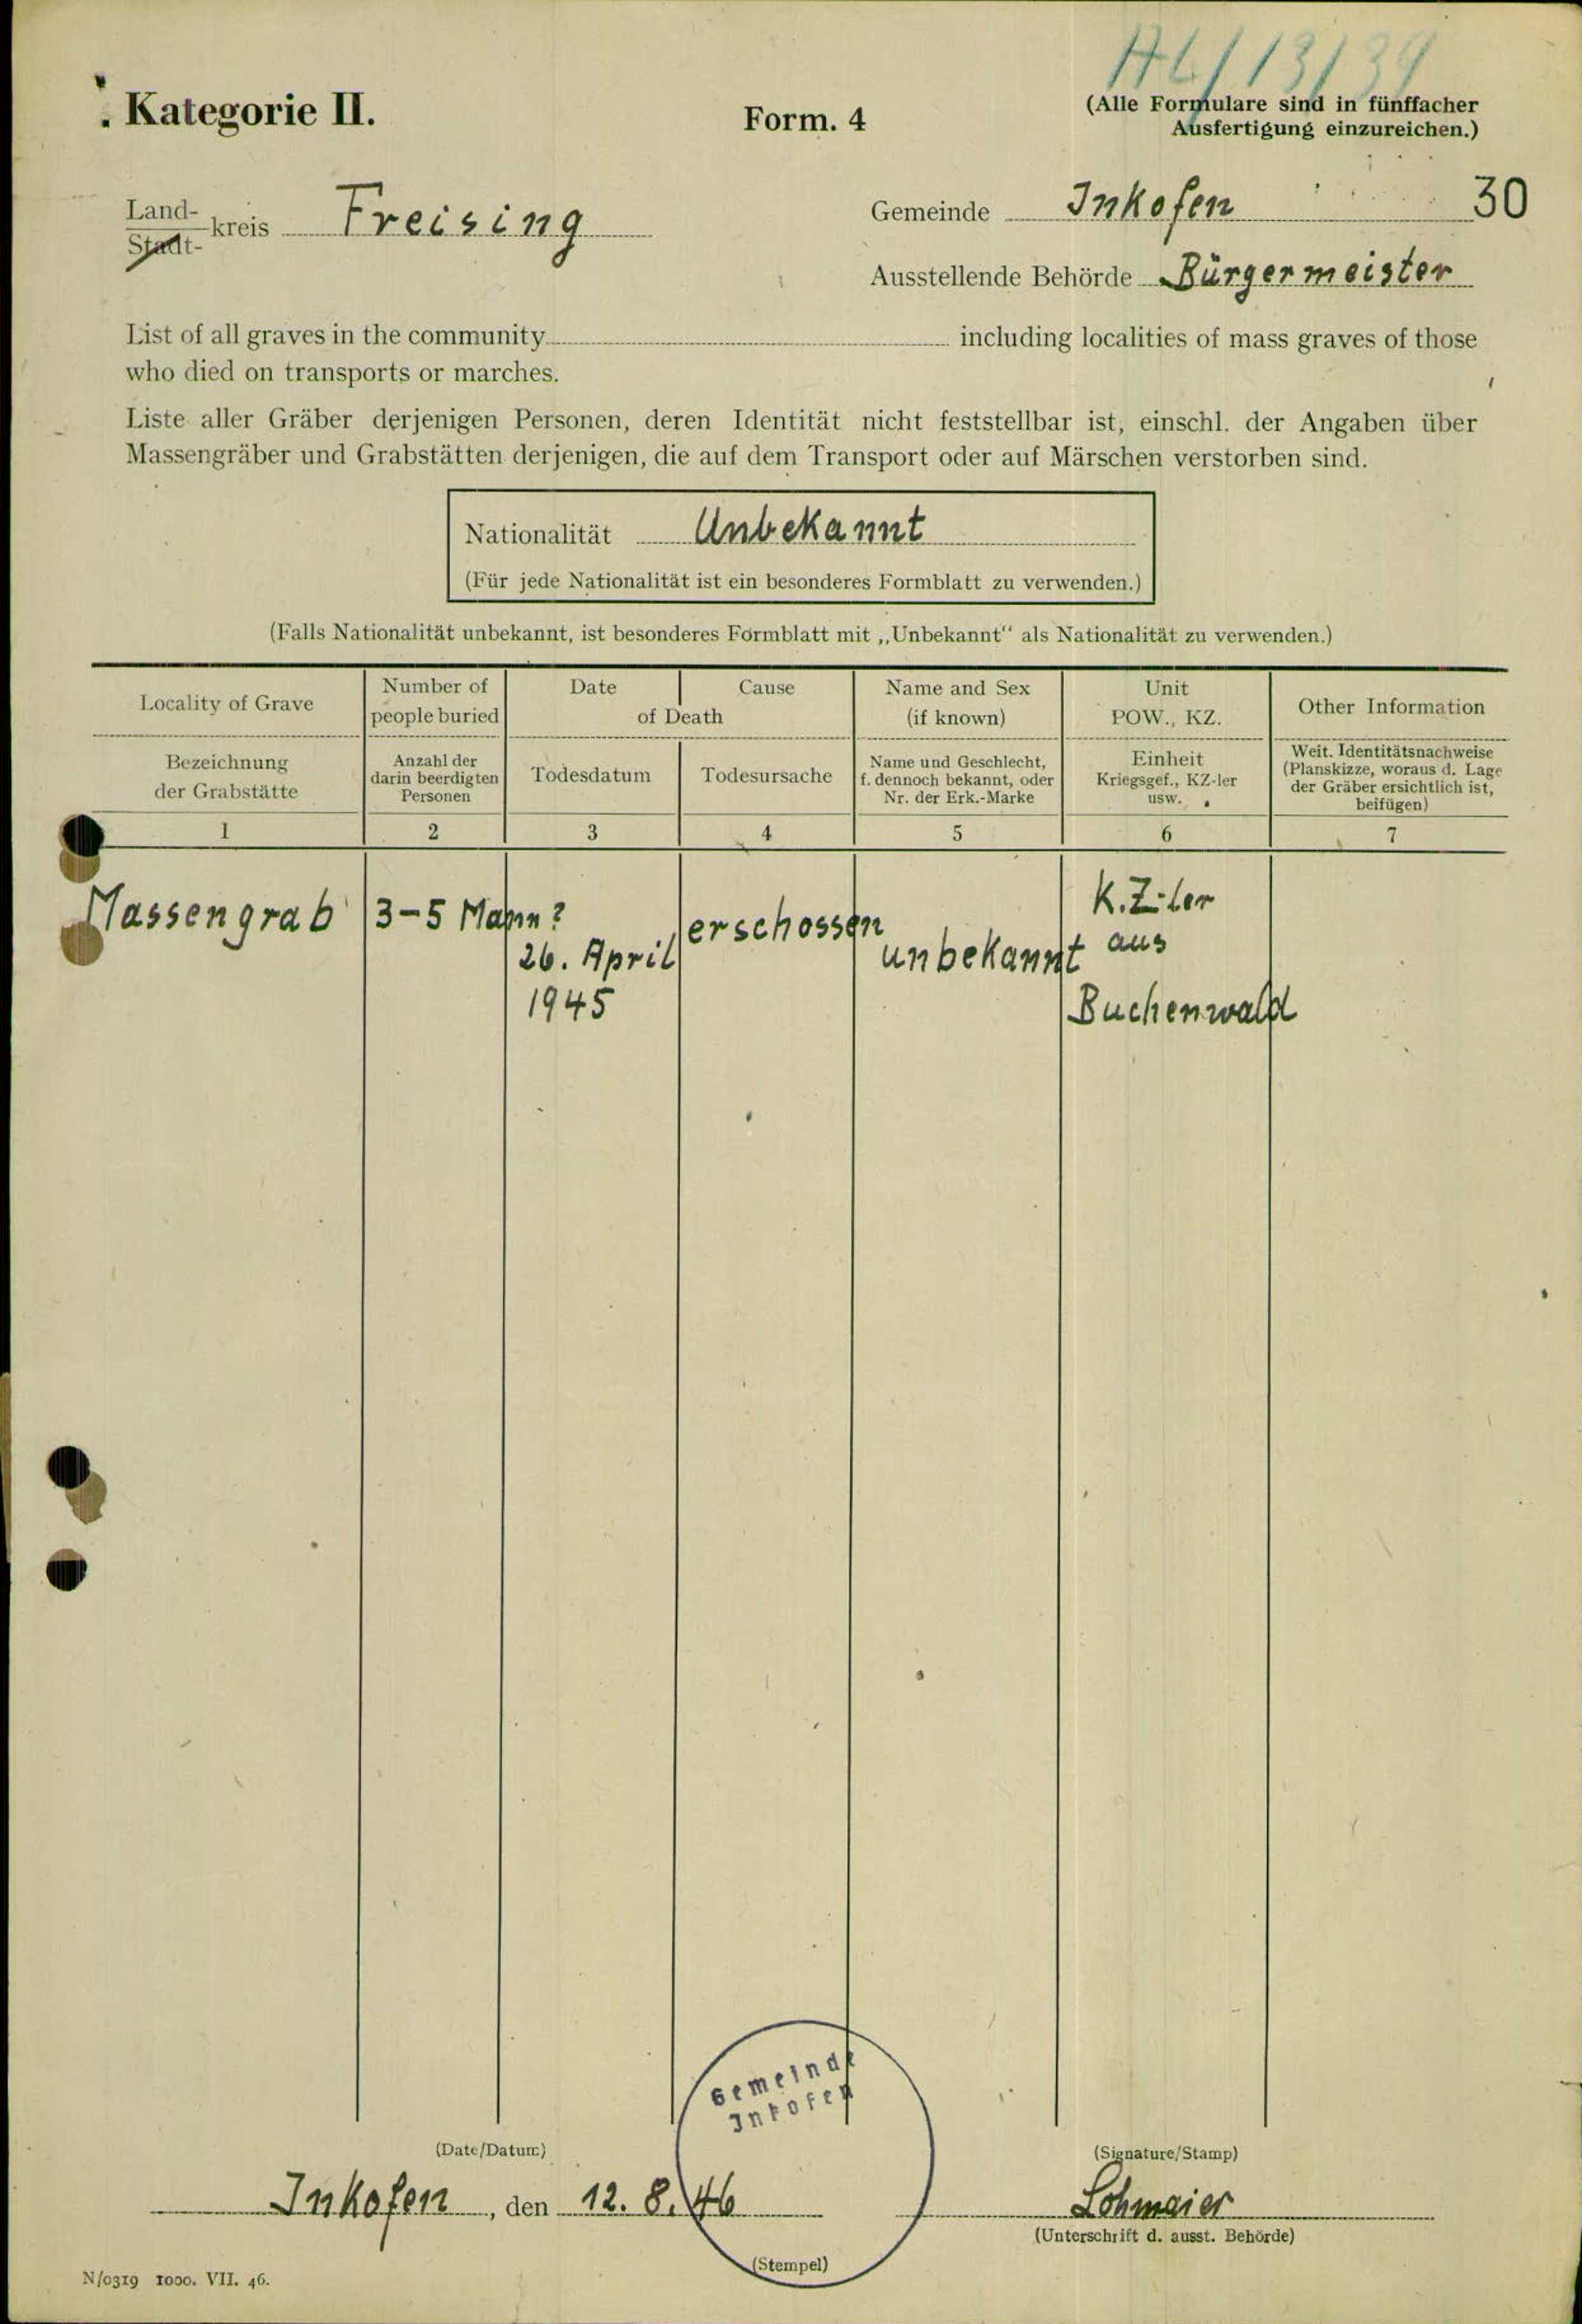 H4/13/39
. Kategorie II.
Form. 4
(Alle Formulare sind in fünffacher
Ausfertigung einzureichen.)
Land-
Stadt- kreis Freising
Gemeinde Inkofen 30
Ausstellende Behörde Bürgermeister
List of all graves in the community including localities of mass graves of those
who died on transports or marches.
Liste aller Gräber derjenigen Personen, deren Identität nicht feststellbar ist, einschl. der Angaben über
Massengräber und Grabstätten derjenigen, die auf dem Transport oder auf Märschen verstorben sind.
Nationalität Unbekannt
(Für jede Nationalität ist ein besonderes Formblatt zu verwenden.)
(Falls Nationalität unbekannt, ist besonderes Formblatt mit „Unbekannt" als Nationalität zu verwenden.)
Locality of Grave
Number of
people buried
Date Cause
of Death
Name and Sex
(if known)
Unit
POW., KZ.
Other Information
Bezeichnung
der Grabstätte
Anzahl der
darin beerdigten
Personen
Todesdatum
Todesursache
Name und Geschlecht,
f. dennoch bekannt, oder
Nr. der Erk.-Marke
Einheit
Kriegsgef., KZ-ler
usw.
Weit. Identitätsnachweise
(Planskizze, woraus d. Lage
der Gräber ersichtlich ist,
beifügen)
1 2 3 4 5 6 7
Massengrab
3-5 Mann?
26. April
1945
erschossen
unbekannt
K.Z-ler
aus
Buchenwald
Gemeinde
Inkofen
(Date/Datum)
(Signature/Stamp)
Inkofen, den 12. 8. 46
Lohmaier
(Unterschrift d. ausst. Behörde)
(Stempel)
N/0319 1000. VII. 46.